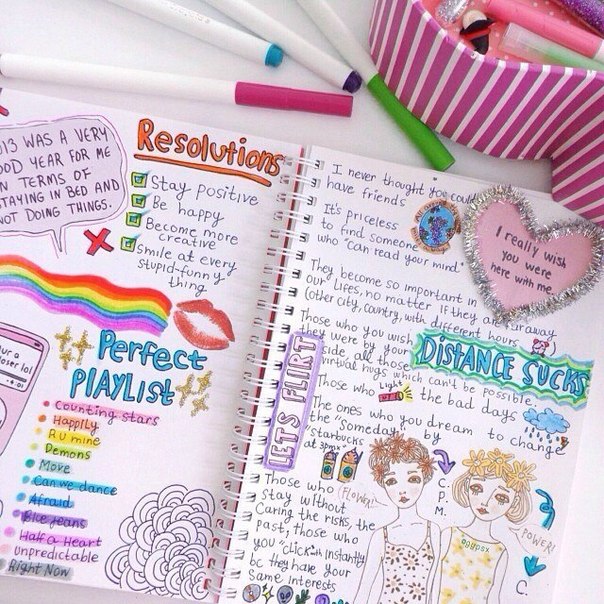 13 WAS A VERY
OOD YEAR FOR ME
N TERMS OF
STAYING IN BED AND
NOT DOING THINGS.
Resolutions
Stay positive
Be happy
Become more
creative
Smile at every
stupid-funny
thing
ur a
loser lol
Perfect
PLAYLIST
Counting stars
Happily
R u mine
Demons
Move
Can we dance
Afraid
Blue jeans
Half a Heart
Unpredictable
Right Now
I never thought you could
have friends
It's priceless
to find someone
who "can read your mind"
They become so important in
our lifes, no matter if they are faraway
(other city, country, with different hours
Those who you wish
they were by your
side, all those
virtual hugs which can't be possible
Those who Light the bad days
The ones who you dream to change
the "someday" by
"Starbucks
at 3pm"
Those who
stay without
Caring the risks, the
past, those who
you "click" with instantly
bc they have your
same interests
I really wish
you were
here with me
DISTANCE SUCKS
LETS FLIRT
(FLOWER!
C.
P.
M.
POWER!
C.